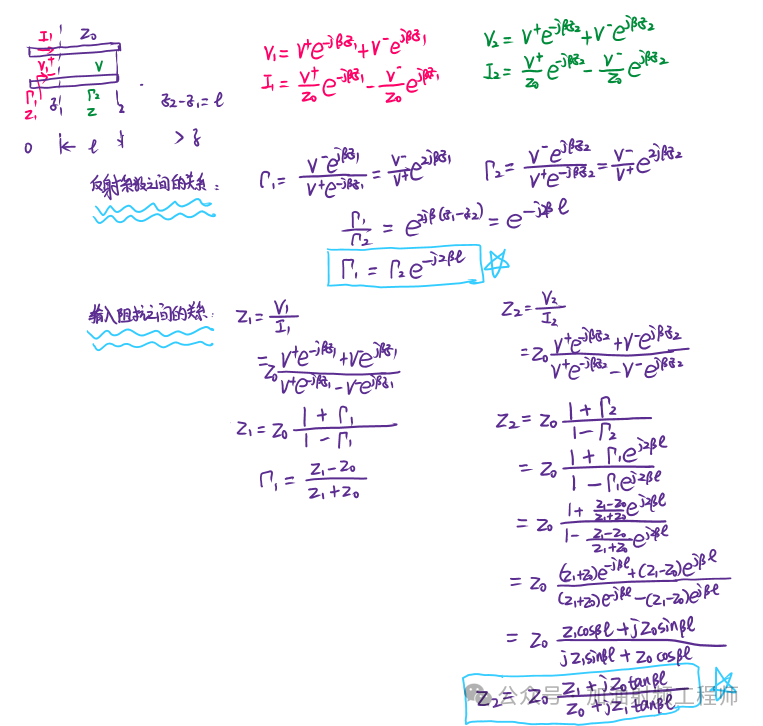 I₁ Z₀
V₁⁺ V
Γ₁ Γ₂
Z₁ z₁ Z 2
z₂-z₁=l
0 l > z
V₁=V⁺e^{-jβz₁}+V⁻e^{jβz₁}
I₁=V⁺/Z₀ e^{-jβz₁}-V⁻/Z₀ e^{jβz₁}
V₂=V⁺e^{-jβz₂}+V⁻e^{jβz₂}
I₂=V⁺/Z₀ e^{-jβz₂}-V⁻/Z₀ e^{jβz₂}
反射系数之间的关系:
Γ₁=V⁻e^{jβz₁}/V⁺e^{-jβz₁}=V⁻/V⁺ e^{2jβz₁}
Γ₂=V⁻e^{jβz₂}/V⁺e^{-jβz₂}=V⁻/V⁺ e^{2jβz₂}
Γ₁/Γ₂=e^{2jβ(z₁-z₂)}=e^{-j2βl}
Γ₁=Γ₂e^{-j2βl}
输入阻抗之间的关系:
Z₁=V₁/I₁
=Z₀ (V⁺e^{-jβz₁}+Ve^{jβz₁})/(V⁺e^{-jβz₁}-V⁻e^{jβz₁})
Z₁=Z₀ (1+Γ₁)/(1-Γ₁)
Γ₁=(Z₁-Z₀)/(Z₁+Z₀)
Z₂=V₂/I₂
=Z₀ (V⁺e^{-jβz₂}+V⁻e^{jβz₂})/(V⁺e^{-jβz₂}-V⁻e^{jβz₂})
Z₂=Z₀ (1+Γ₂)/(1-Γ₂)
=Z₀ (1+Γ₁e^{j2βl})/(1-Γ₁e^{j2βl})
=Z₀ (1+(Z₁-Z₀)/(Z₁+Z₀) e^{j2βl})/(1-(Z₁-Z₀)/(Z₁+Z₀) e^{j2βl})
=Z₀ ((Z₁+Z₀)e^{-jβl}+(Z₁-Z₀)e^{jβl})/((Z₁+Z₀)e^{-jβl}-(Z₁-Z₀)e^{jβl})
=Z₀ (Z₁cosβl+jZ₀sinβl)/(jZ₁sinβl+Z₀cosβl)
Z₂=Z₀ (Z₁+jZ₀tanβl)/(Z₀+jZ₁tanβl)
公众号 · 加油射频工程师